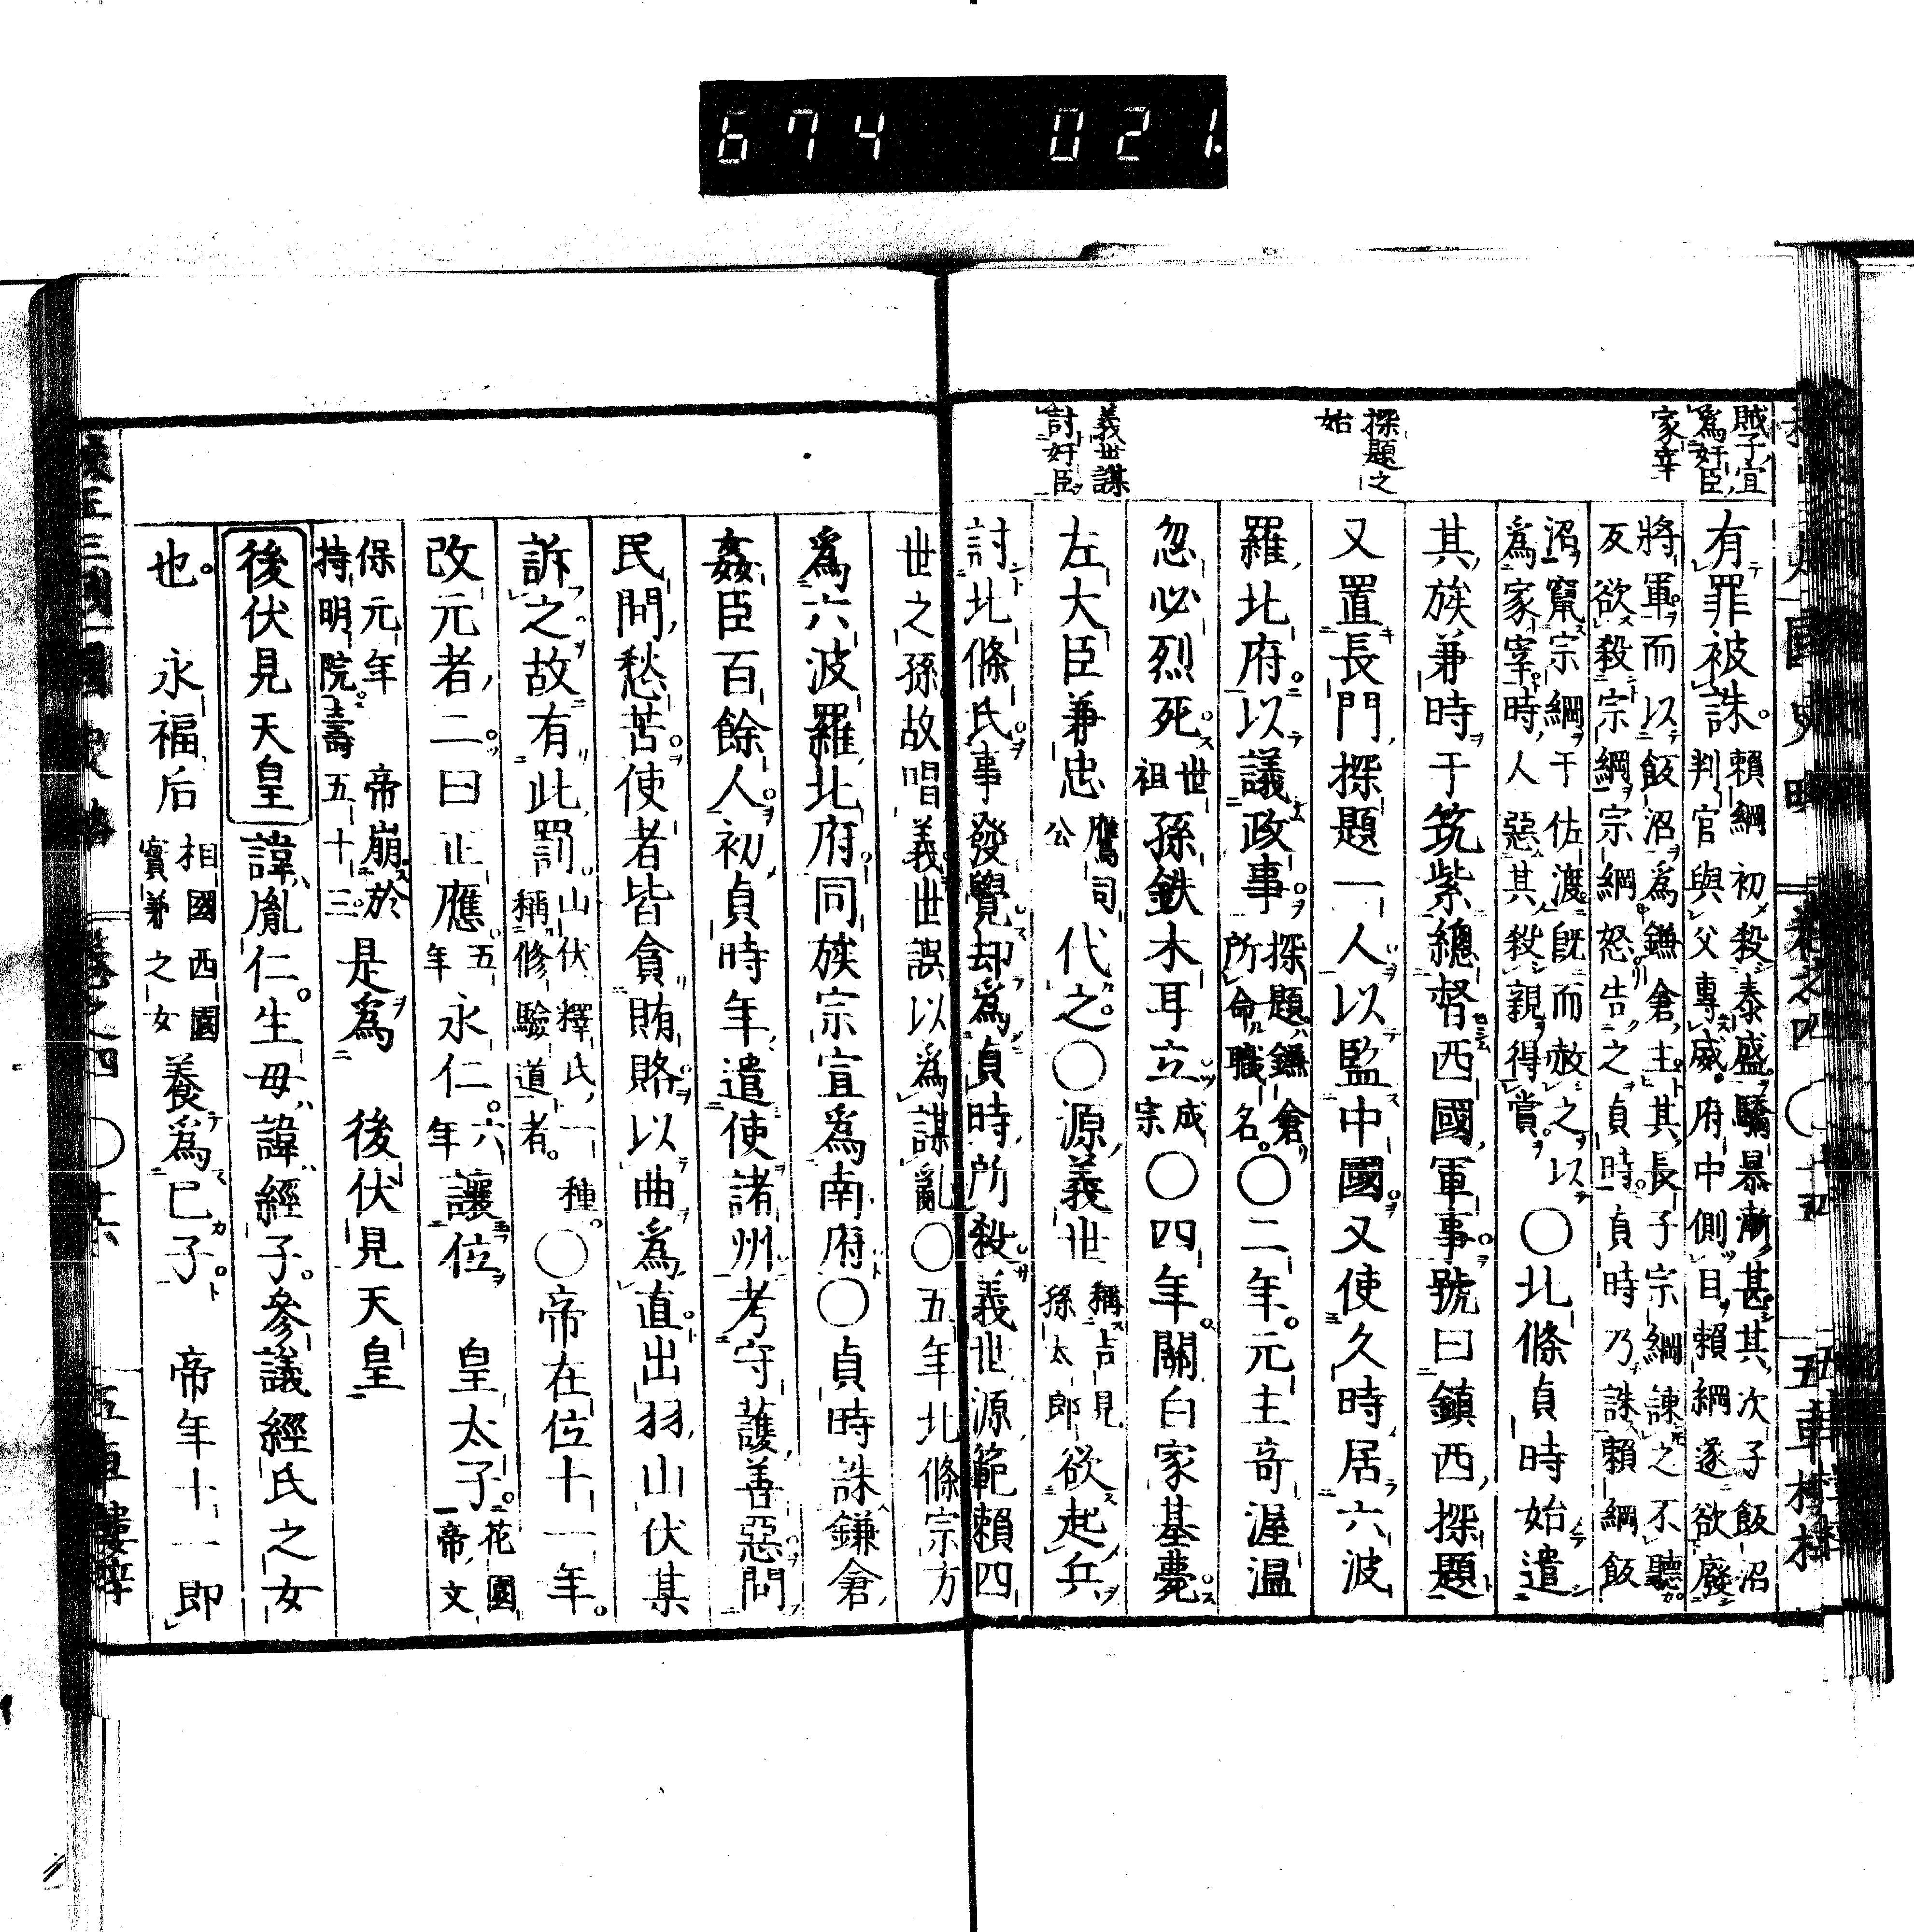 674 021.
賊子宜
爲奸臣
家宰
探題之
始
義世謀
討奸臣
有罪被誅。頼綱初殺泰盛。驕暴漸甚其次子飯沼
判官與父專威。府中側目頼綱遂欲廢
將軍而以飯沼爲鎌倉主其長子宗綱諫之不聽
反欲殺宗綱宗綱怒告之貞時。貞時乃誅頼綱飯
沼竄宗綱于佐渡。既而赦之以
爲家宰時人惡其殺親得賞。〇北條貞時始遣
其族兼時于筑紫總督西國軍事號曰鎮西探題
又置長門探題一人以監中國。又使久時居六波
羅北府。以議政事。探題鎌倉
所命職名。〇二年。元主奇渥温
忽必烈死。世
祖孫鉄木耳立。成
宗〇四年。關白家基薨。
左大臣兼忠鷹司
公代之。〇源義世稱吉見
孫太郎欲起兵
討北條氏事發覺却爲貞時所殺義世源範頼四
世之孫。故唱義世誤以爲謀亂〇五年北條宗方
爲六波羅北府同族宗宣爲南府〇貞時誅鎌倉
姦臣百餘人。初貞時年遣使諸州考守護善惡問
民間愁苦。使者皆貪賄賂以曲爲直。出羽山伏某
訴之故有此罰。山伏釋氏一種。
稱修驗道者。〇帝在位十一年。
改元者二。曰正應五
年永仁。六
年讓位 皇太子。花園
帝文
保元年 帝崩於
持明院。壽五十三。是爲 後伏見天皇
後伏見天皇諱胤仁。生母諱經子。參議經氏之女
也。 永福后相國西園
實兼之女養爲已子。 帝年十一即